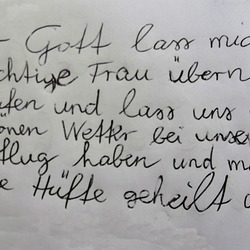 Gott lass mic
chtige Frau übern
fen und lass uns
önen Wetter bei unse
flug haben und m
e Hüfte geheilt